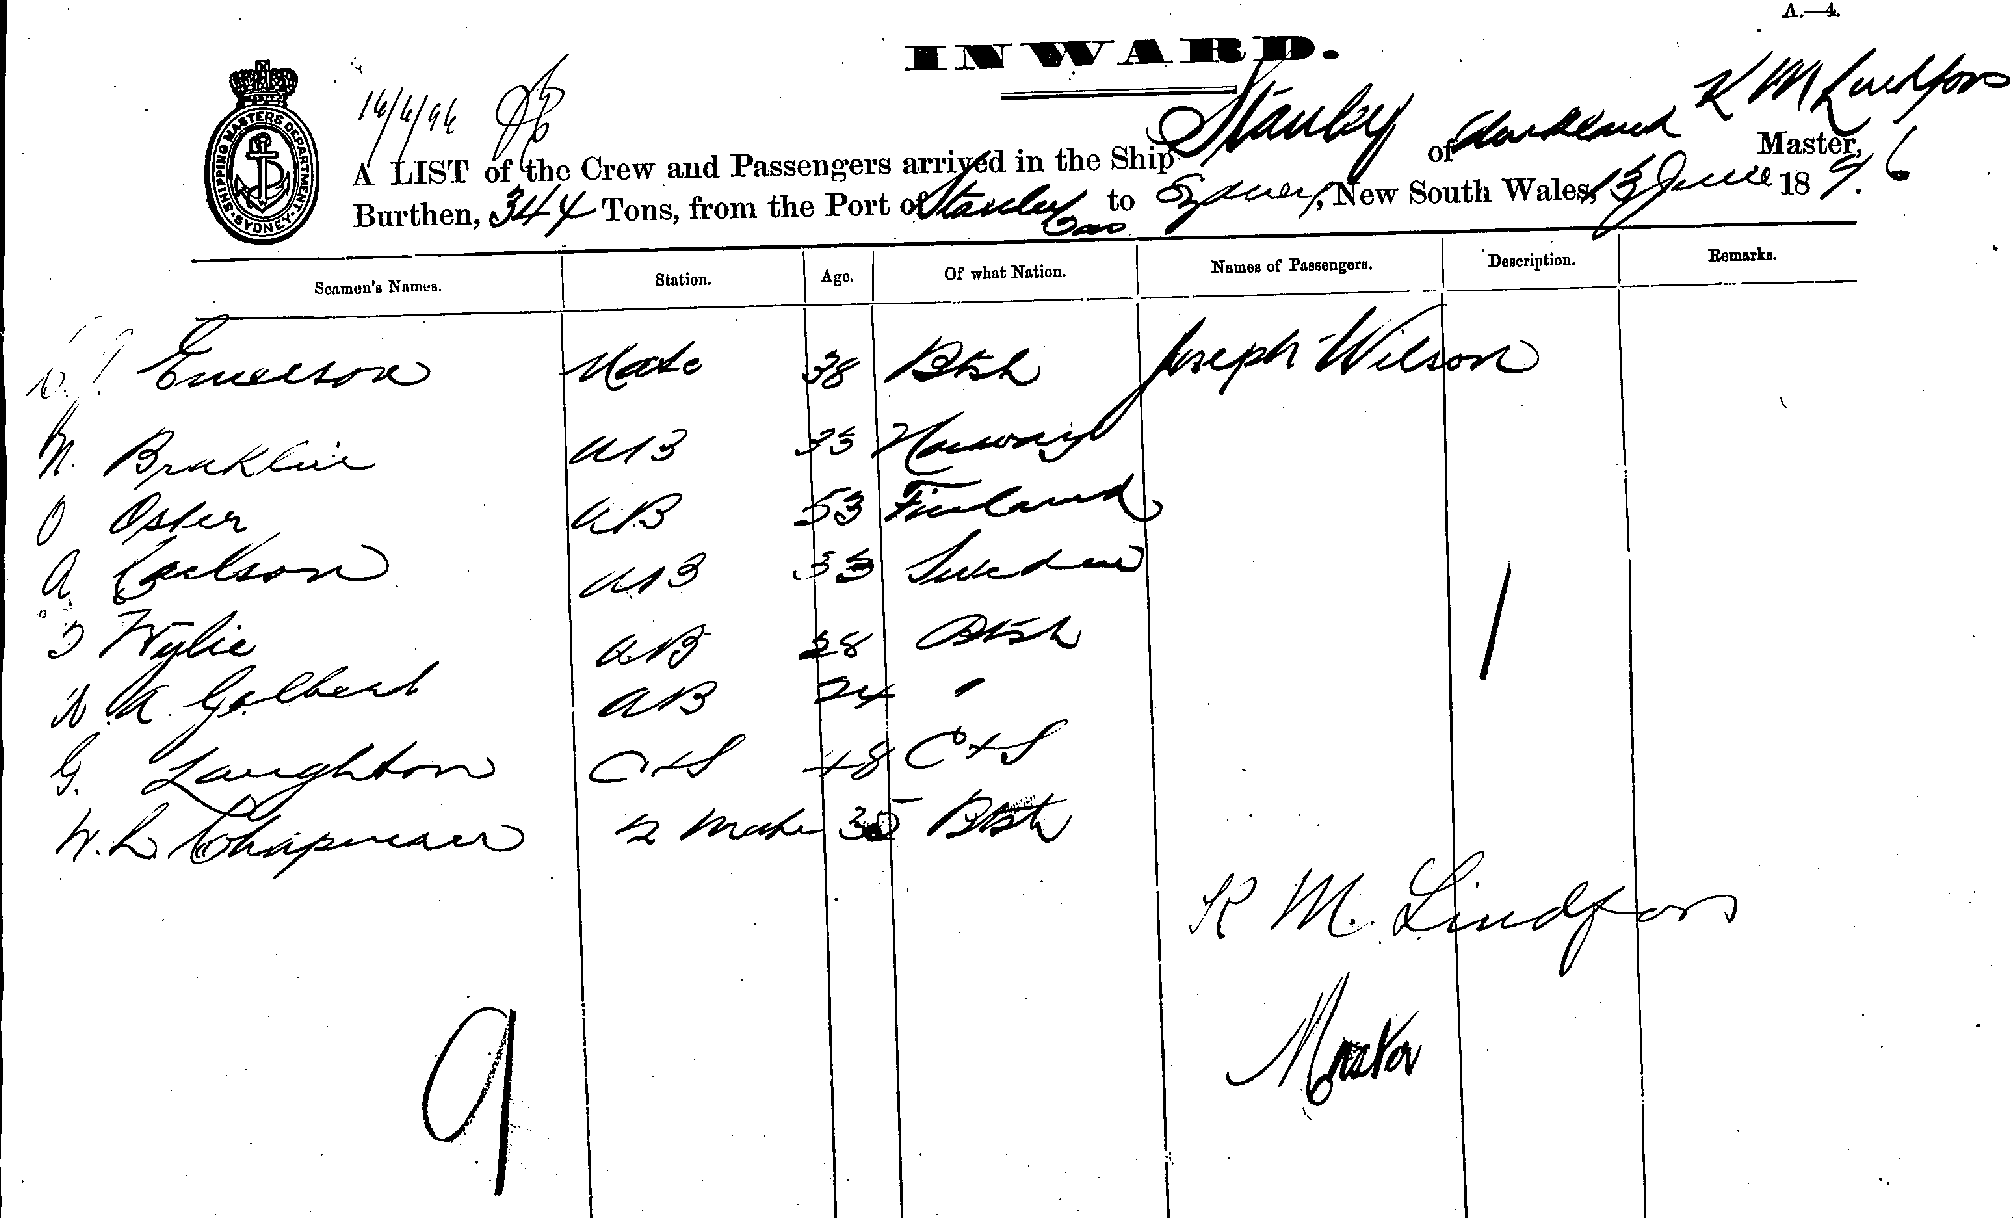 A.—4.
INWARD.
SHIPPING MASTERS DEPARTMENT. SYDNEY.
16/6/96
K M Lindfors
A LIST of the Crew and Passengers arrived in the Ship Stanley of Auckland Master,
Burthen, 344 Tons, from the Port of Stanley to Sydney, New South Wales, 13 June 1896
Seamen's Names. Station. Age. Of what Nation. Names of Passengers. Description. Remarks.
Emerson Mate 38 Btsh Joseph Wilson
N. AB 35 Norway
O Oster AB 53 Finland
A Carlson AB 33 Sweden
Wylie AB 28 Btsh
A. Golbert AB 24 "
G. Laughton C+S 48 C+S
W. L Chapman 2 Mate 35 Btsh
1
K M. Lindfors
Master
9